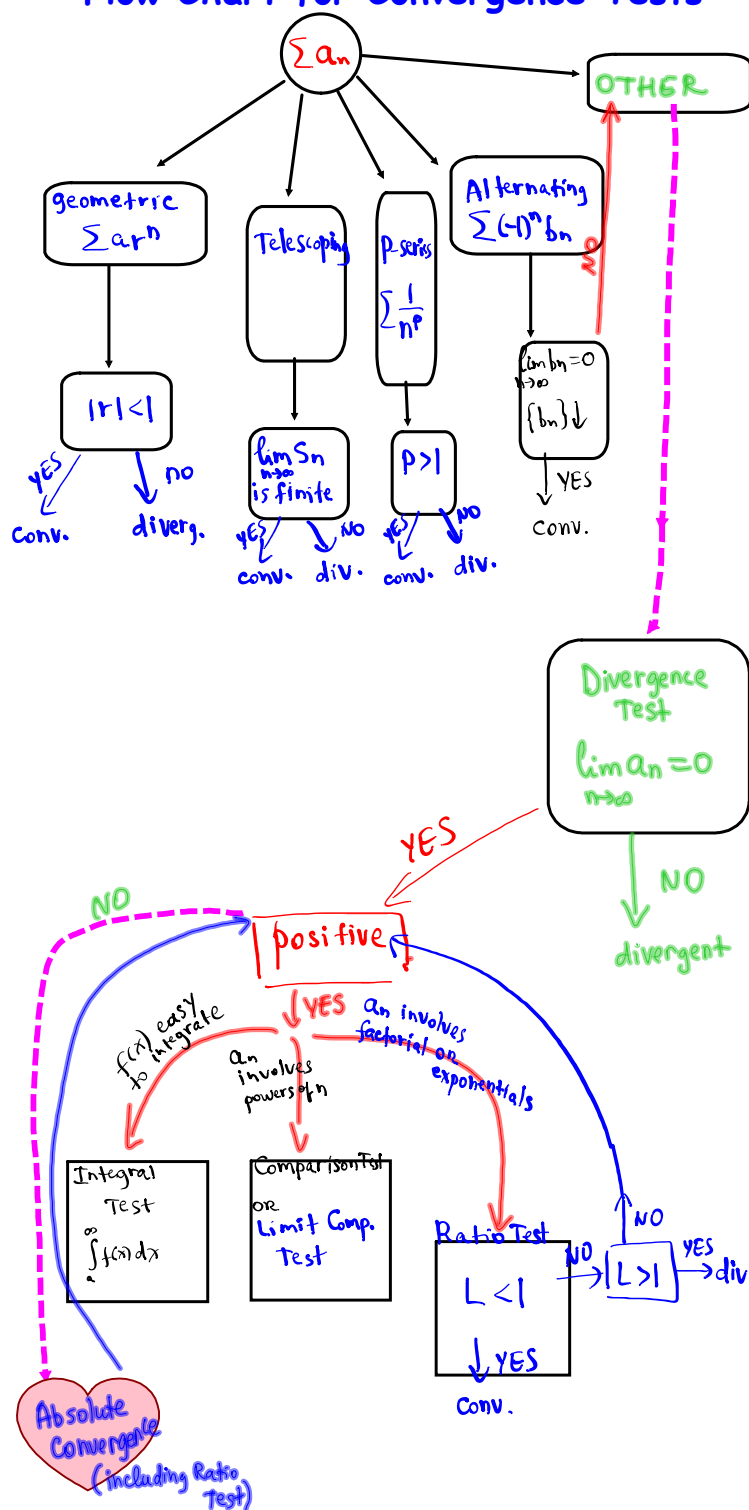 Flow Chart for Convergence Tests
∑ an
OTHER
geometric
∑ arⁿ
Telescoping
p-series
∑ 1/nᵖ
Alternating
∑ (-1)ⁿ bn
NO
|r| < 1
YES
NO
conv.
diverg.
lim Sn
n→∞
is finite
YES
NO
conv.
div.
P > 1
YES
NO
conv.
div.
lim bn = 0
n→∞
{bn} ↓
YES
conv.
Divergence
Test
lim an = 0
n→∞
YES
NO
divergent
NO
positive
YES
f(x) easy
to integrate
an
involves
powers of n
an involves
factorial or
exponentials
Integral
Test
∫ f(x) dx
∞
Comparison Test
OR
Limit Comp.
Test
Ratio Test
L < 1
YES
Conv.
NO
L > 1
NO
YES
div
Absolute
Convergence
(including Ratio
Test)